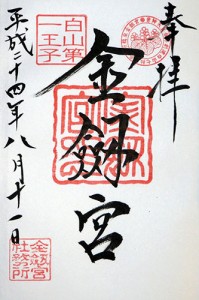 奉拝
白山第
一王子
金劔宮
平成二十四年八月十一日
金劔宮
社務所